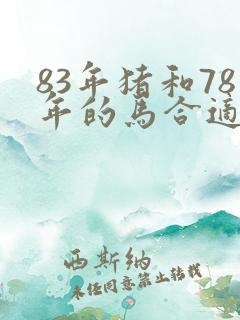 83年猪和78
年的马合適
西斯纳
未经同意禁止转载